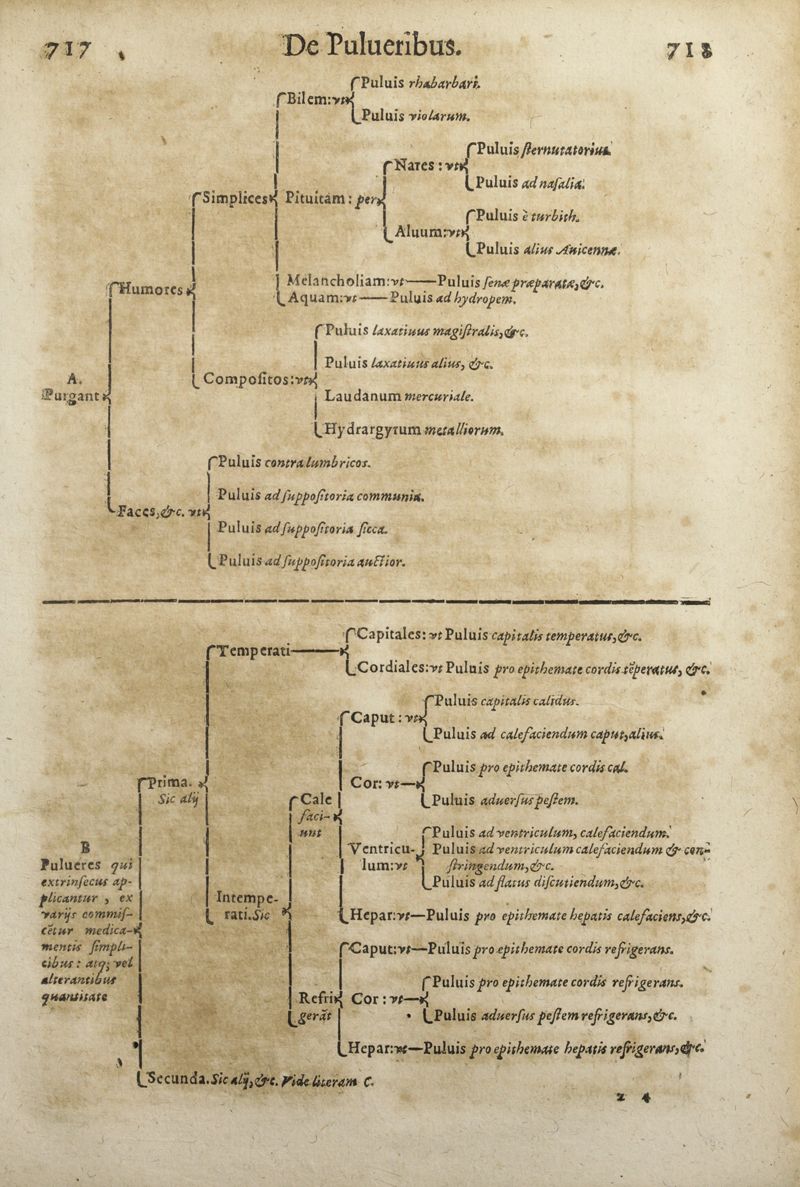 717 De Pulueribus. 718
Puluis rhabarbari.
Bilem: vt
Puluis violarum.
Puluis sternutatorius.
Nares: vt
Puluis ad nasalia.
Simplices Pituitam: per
Puluis è turbith.
Aluum: vt
Puluis alius Auicennæ.
Melancholiam: vt Puluis senæ præparatæ, &c.
Humores
Aquam: vt Puluis ad hydropem.
Puluis laxatiuus magistralis, &c.
Puluis laxatiuus alius, &c.
A. Compositos: vt
Purgant
Laudanum mercuriale.
Hydrargyrum metalliorum.
Puluis contra lumbricos.
Puluis ad suppositoria communia.
Faces, &c. vt
Puluis ad suppositoria sicca.
Puluis ad suppositoria auctior.
Capitales: vt Puluis capitalis temperatus, &c.
Temperati
Cordiales: vt Puluis pro epithemate cordis tẽperatus, &c.
Puluis capitalis calidus.
Caput: vt
Puluis ad calefaciendum caput, alius.
Puluis pro epithemate cordis cal.
Prima. Cor: vt
Sic alij Cale Puluis aduersus pestem.
faci-
unt Puluis ad ventriculum, calefaciendum.
B Ventricu- Puluis ad ventriculum calefaciendum & con-
Pulueres qui lum: vt stringendum, &c.
extrinsecus ap- Puluis ad flatus discutiendum, &c.
plicantur, ex Intempe-
varijs commis- rati. Sic Hepar: vt Puluis pro epithemate hepatis calefaciens, &c.
cẽtur medica-
mentis simpli- Caput: vt Puluis pro epithemate cordis refrigerans.
cibus: atq; vel
alterantibus Puluis pro epithemate cordis refrigerans.
quantitate Refri Cor: vt
gerãt Puluis aduersus pestem refrigerans, &c.
Hepar: vt Puluis pro epithemate hepatis refrigerans, &c.
Secunda. Sic alij, &c. Vide literam C.
z 4